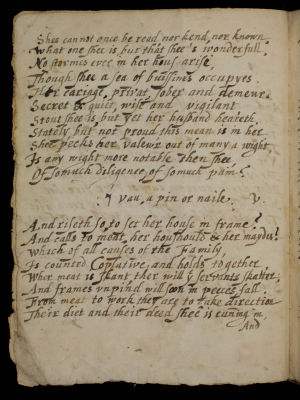 Shee cannot once be read nor kend, nor known
What one shee is, but that shee's wonderfull.
No stormis ever in her hous arise,
Though shee a sea of buissines occupyes.
Her cariage, privat, sober and demeur.
Secret & quiet, wise and vigilant
Stout shee is, but yet her husband heareth
Stately but not proud this mean is in her
Shee pecks her valeur out of many a wight
Is any wight more notable then shee,
Of somuch diligence of somuch pain?
vau, a pin or naile. ו
And riseth so, to set her house in frame?
And calls to meat, her houshoulds & her maydes?
Which of all causes of the Family
Is counted Copulative, and holds together
Wher meat is skant ther will servants skatter,
And frames unpind will soon in peeces fall.
From meat to work they are to take direction
Their diet and their deed shee is cuning in
And